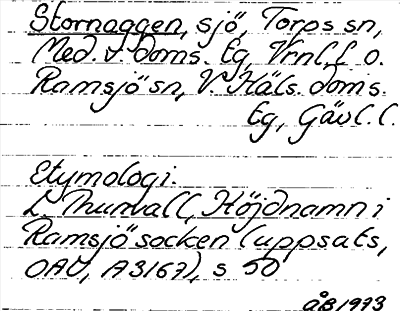 Stornaggen, sjö, Torps sn,
Med. v. doms. tg, Vrnl. l. o.
Ramsjö sn, V. Häls. doms.
tg, Gävl. l.
Etymologi.
L. Thunvall, Höjdnamn i
Ramsjö socken (uppsats,
OAU, A3167), s 50
ÅB 1973